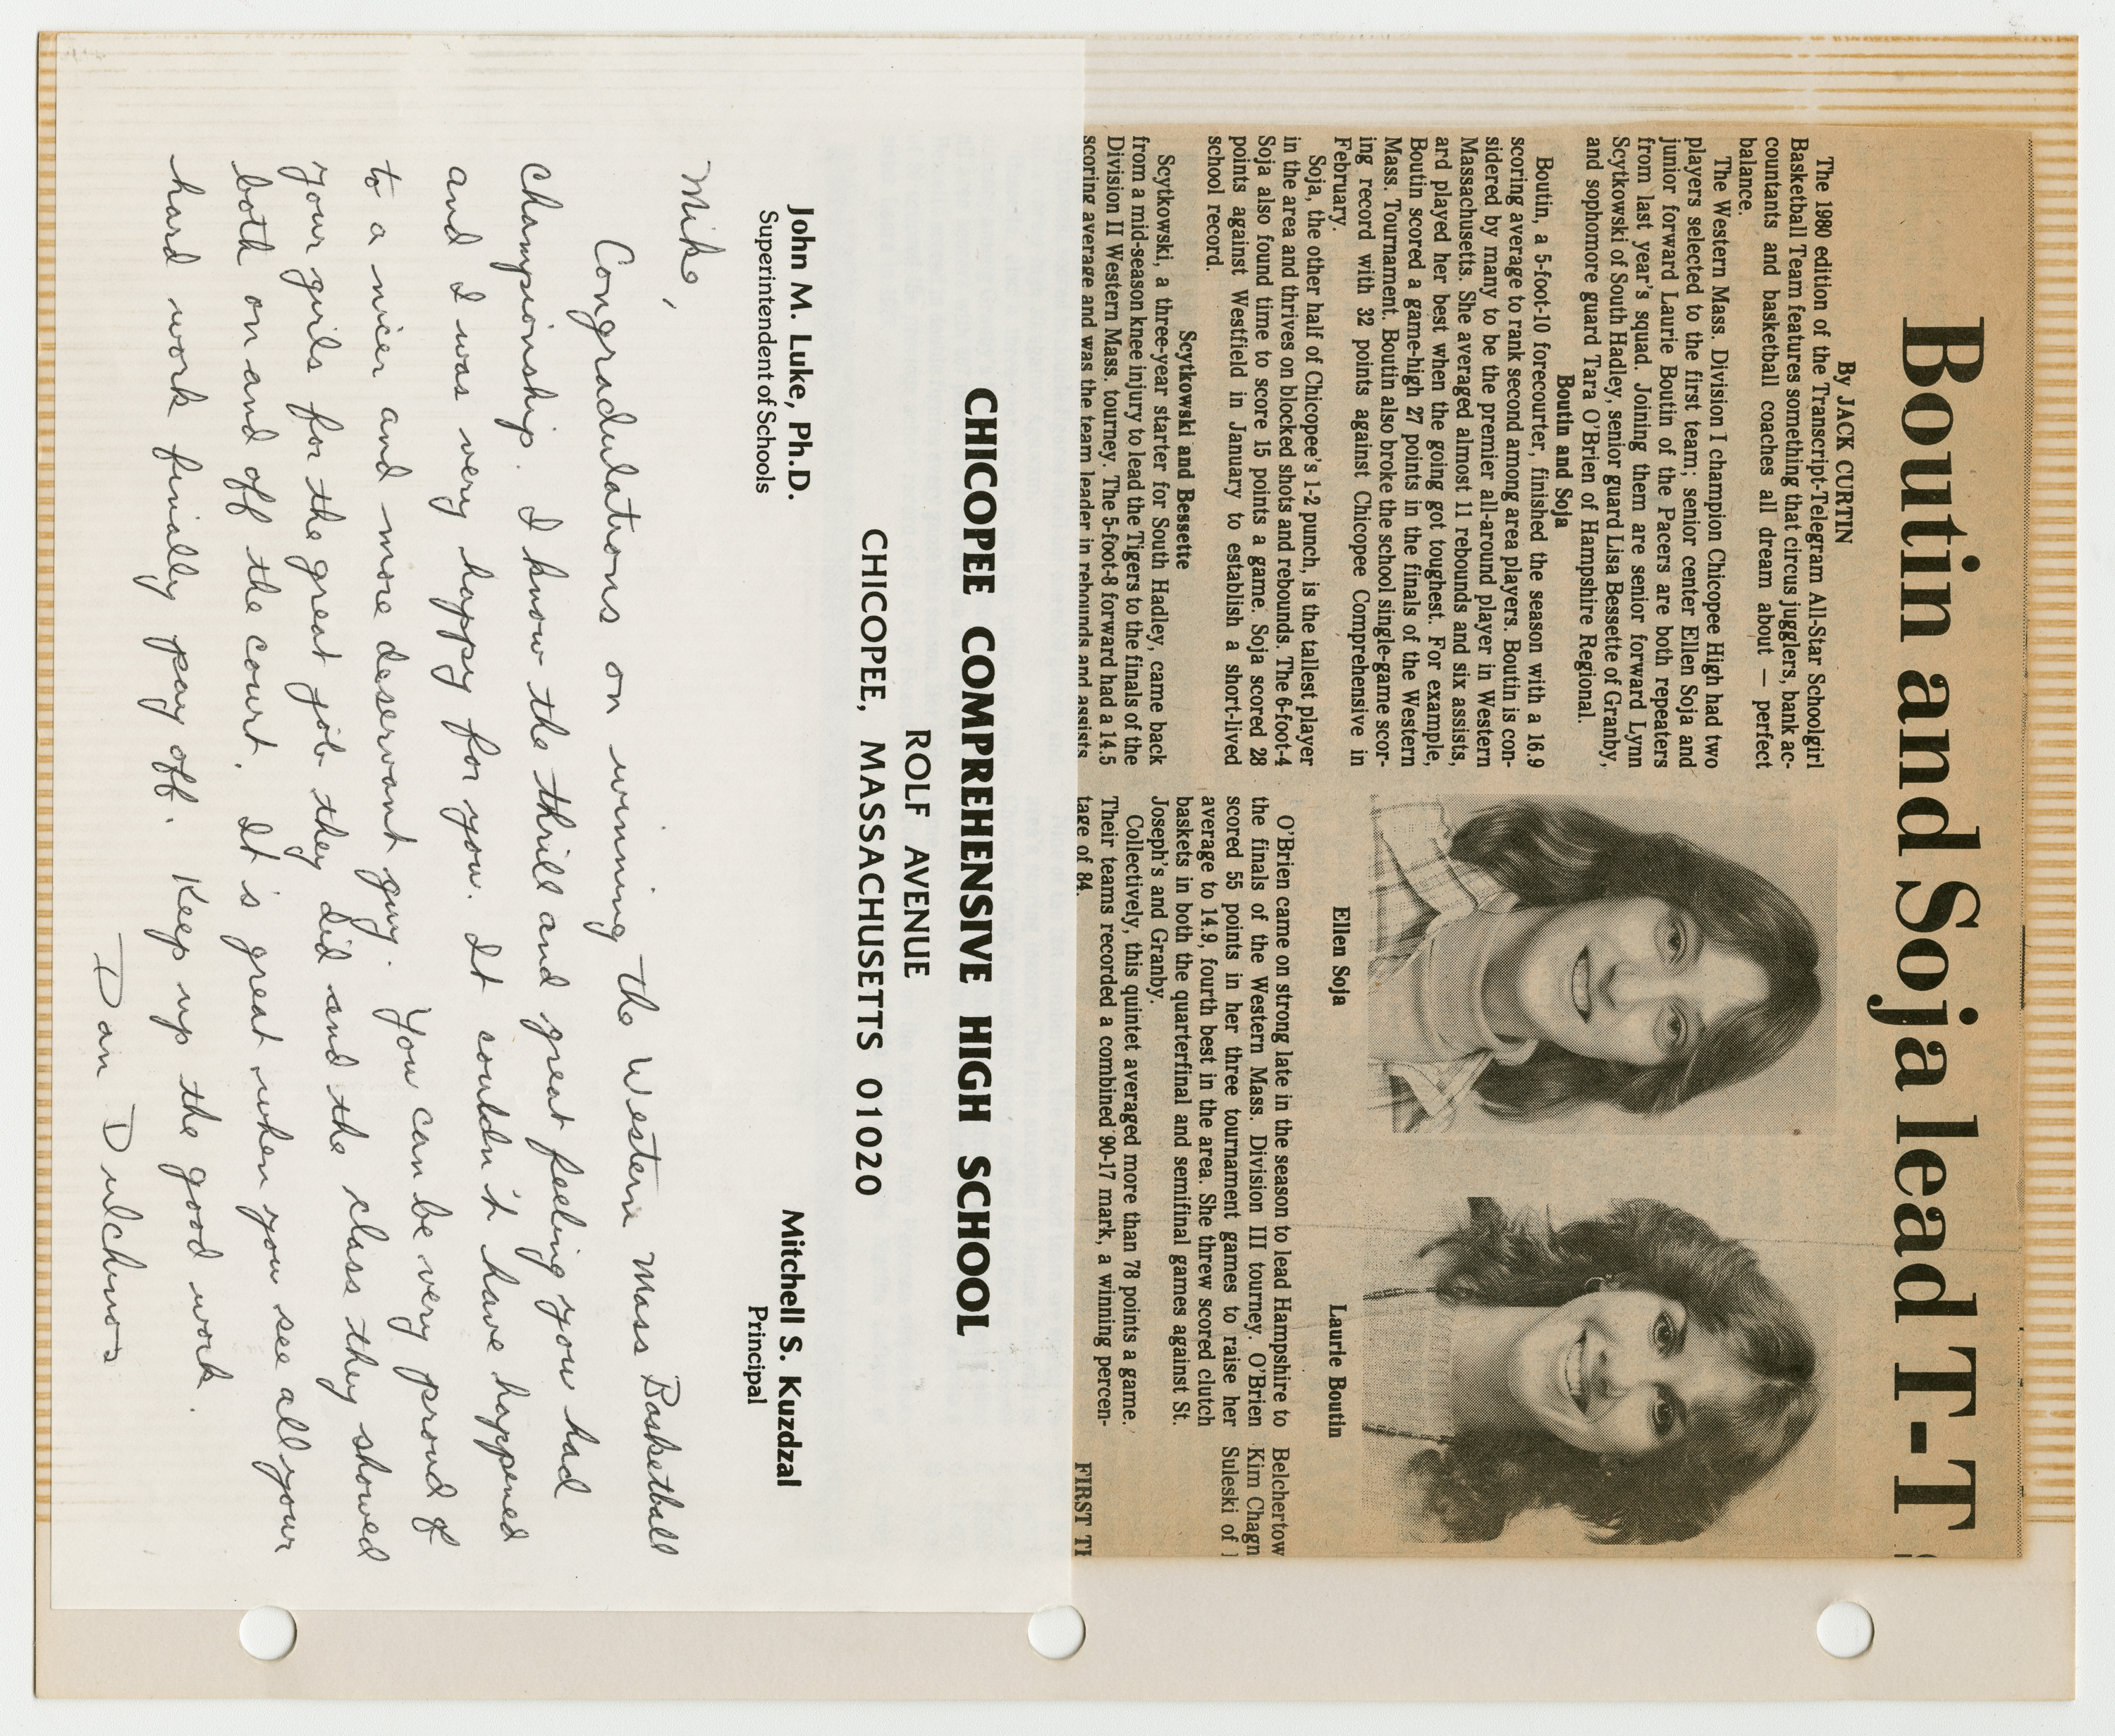 Boutin and Soja lead T-T
By JACK CURTIN
The 1980 edition of the Transcript-Telegram All-Star Schoolgirl
Basketball Team features something that circus jugglers, bank ac-
countants and basketball coaches all dream about — perfect
balance.
The Western Mass. Division I champion Chicopee High had two
players selected to the first team; senior center Ellen Soja and
junior forward Laurie Boutin of the Pacers are both repeaters
from last year's squad. Joining them are senior forward Lynn
Scytkowski of South Hadley, senior guard Lisa Bessette of Granby,
and sophomore guard Tara O'Brien of Hampshire Regional.
Boutin and Soja
Boutin, a 5-foot-10 forecourter, finished the season with a 16.9
scoring average to rank second among area players. Boutin is con-
sidered by many to be the premier all-around player in Western
Massachusetts. She averaged almost 11 rebounds and six assists,
ard played her best when the going got toughest. For example,
Boutin scored a game-high 27 points in the finals of the Western
Mass. Tournament. Boutin also broke the school single-game scor-
ing record with 32 points against Chicopee Comprehensive in
February.
Soja, the other half of Chicopee's 1-2 punch, is the tallest player
in the area and thrives on blocked shots and rebounds. The 6-foot-4
Soja also found time to score 15 points a game. Soja scored 28
points against Westfield in January to establish a short-lived
school record.
Scytkowski and Bessette
Scytkowski, a three-year starter for South Hadley, came back
from a mid-season knee injury to lead the Tigers to the finals of the
Division II Western Mass. tourney. The 5-foot-8 forward had a 14.5
scoring average and was the team leader in rebounds and assists
Ellen Soja
Laurie Boutin
O'Brien came on strong late in the season to lead Hampshire to
the finals of the Western Mass. Division III tourney. O'Brien
scored 55 points in her three tournament games to raise her
average to 14.9, fourth best in the area. She threw scored clutch
baskets in both the quarterfinal and semifinal games against St.
Joseph's and Granby.
Collectively, this quintet averaged more than 78 points a game.
Their teams recorded a combined 90-17 mark, a winning percen-
tage of 84.
Belchertow
Kim Chagn
Suleski of
FIRST TE
CHICOPEE COMPREHENSIVE HIGH SCHOOL
ROLF AVENUE
CHICOPEE, MASSACHUSETTS 01020
John M. Luke, Ph.D.
Superintendent of Schools
Mitchell S. Kuzdzal
Principal
Mike,
Congradulations on winning the Western Mass Basketball
Championship. I know the thrill and great feeling you had
and I was very happy for you. It couldn't have happened
to a nicer and more deservant guy. You can be very proud of
your girls for the great job they did and the class they showed
both on and off the court. It's great when you see all your
hard work finially pay off. Keep up the good work.
Dan Dulchinos